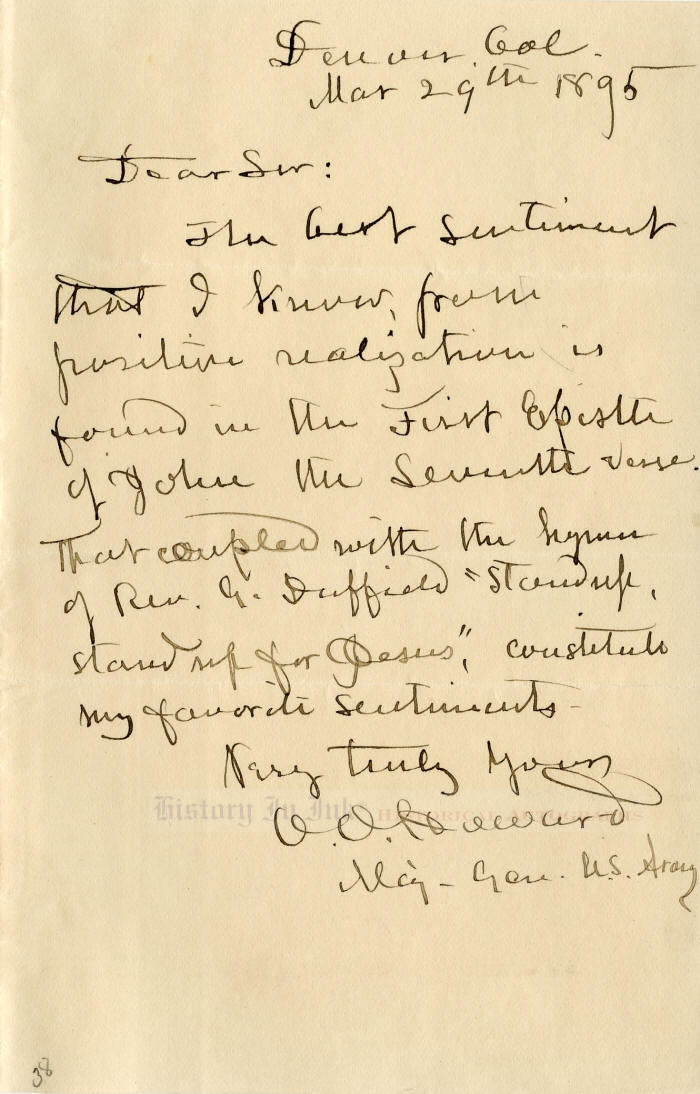 Denver. Col.
Mar 29th 1895
Dear Sir:
The best sentiment
that I know, from
positive realization is
found in the First Epistle
of John the Seventh verse.
That coupled with the hymn
of Rev. G. Duffield "Stand up,
stand up for Jesus", constitute
my favorite sentiments-
Very truly Yours
History In Ink HISTORICAL AUTOGRAPHS
O.O. Howard
Maj- Gen. U.S. Army
38